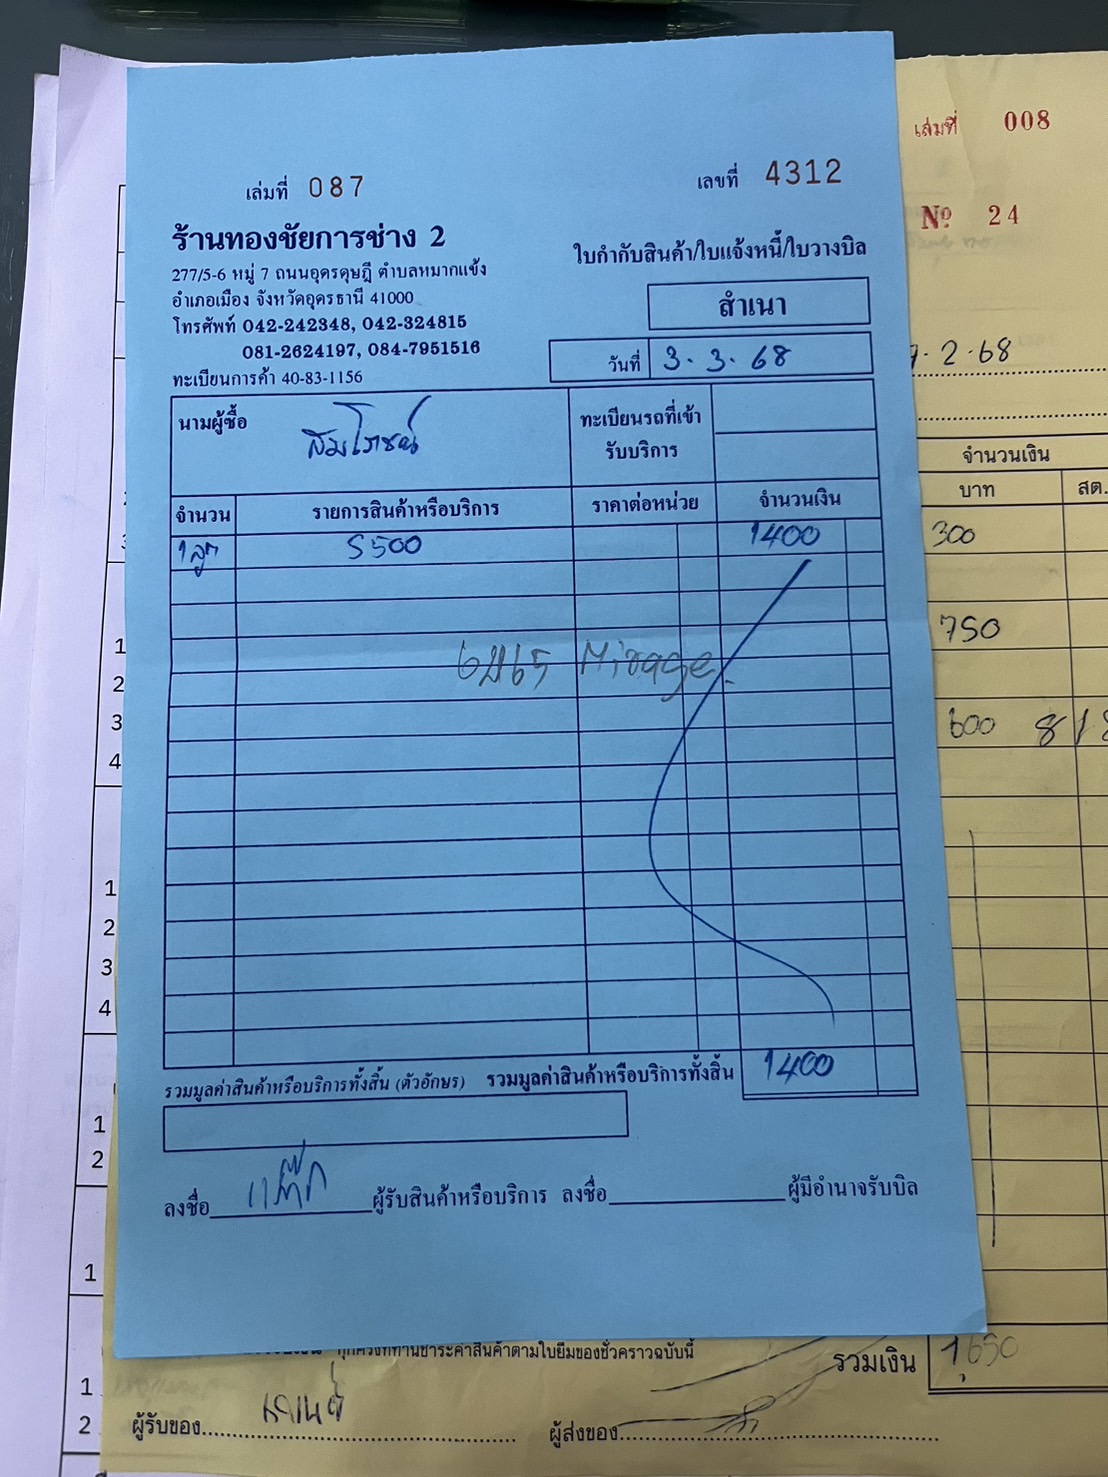 เล่มที่ 087
เลขที่ 4312
ร้านทองชัยการช่าง 2
277/5-6 หมู่ 7 ถนนอุดรดุษฎี ตำบลหมากแข้ง
อำเภอเมือง จังหวัดอุดรธานี 41000
โทรศัพท์ 042-242348, 042-324815
081-2624197, 084-7951516
ทะเบียนการค้า 40-83-1156
ใบกำกับสินค้า/ใบแจ้งหนี้/ใบวางบิล
สำเนา
วันที่ 3.3.68
นามผู้ซื้อ สมโภชน์
ทะเบียนรถที่เข้า
รับบริการ
จำนวน รายการสินค้าหรือบริการ ราคาต่อหน่วย จำนวนเงิน
1 ลูก S500 1400
Mirage
รวมมูลค่าสินค้าหรือบริการทั้งสิ้น (ตัวอักษร) รวมมูลค่าสินค้าหรือบริการทั้งสิ้น 1400
ลงชื่อ ผู้รับสินค้าหรือบริการ ลงชื่อ ผู้มีอำนาจรับบิล
เล่มที่ 008
Nº 24
2.68
จำนวนเงิน
บาท สต.
300
750
600
ทุกครั้งที่ท่านชำระค่าสินค้าตามใบยืมของชั่วคราวฉบับนี้
รวมเงิน 1,650
ผู้รับของ
ผู้ส่งของ
1
2
3
4
1
2
3
4
1
2
1
1
2